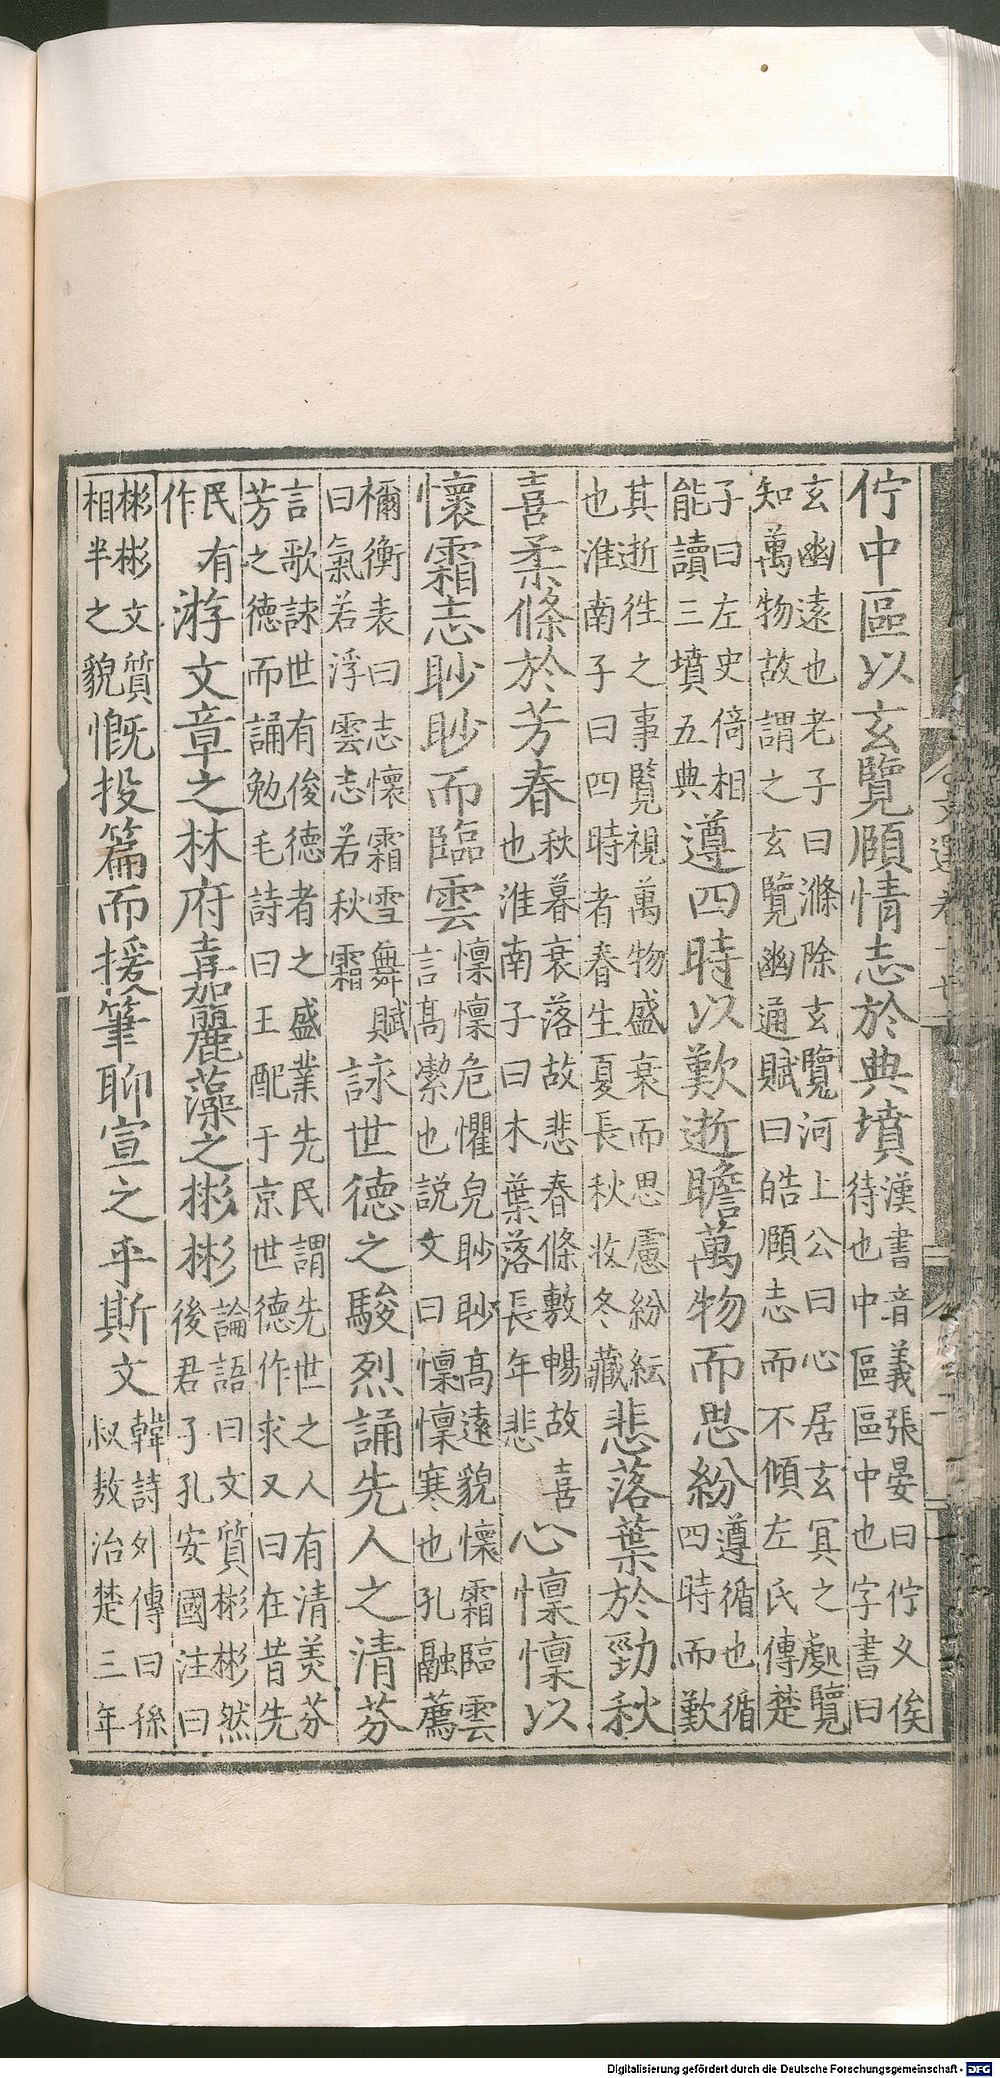 佇中區以玄覽頤情志於典墳
漢書音義張晏曰佇乂俟
待也中區區中也字書曰
玄幽遠也老子曰滌除玄覽河上公曰心居玄冥之處覽
知萬物故謂之玄覽幽通賦曰皓頤志而不傾左氏傳楚
子曰左史倚相
能讀三墳五典
遵四時以歎逝瞻萬物而思紛
遵循也循
四時而歎
其逝徃之事覽視萬物盛衰而思慮紛紜
也淮南子曰四時者春生夏長秋收冬藏
悲落葉於勁秋
喜柔條於芳春
秋暮衰落故悲春條敷暢故喜
也淮南子曰木葉落長年悲
心懍懍以
懷霜志眇眇而臨雲
懍懍危懼皃眇眇髙遠貌懷霜臨雲
言髙潔也説文曰懍懍寒也孔融薦
禰衡表曰志懷霜雪舞賦
曰氣若浮雲志若秋霜
詠世德之駿烈誦先人之清芬
言歌誄世有俊德者之盛業先民謂先世之人有清羙芬
芳之德而誦勉毛詩曰王配于京世德作求又曰在昔先
民有
作
游文章之林府嘉麗藻之彬彬
論語曰文質彬彬然
後君子孔安國注曰
彬彬文質
相半之貌
慨投篇而援筆聊宣之乎斯文
韓詩外傳曰孫
叔敖治楚三年
文選卷十七
Digitalisierung gefördert durch die Deutsche Forschungsgemeinschaft - DFG